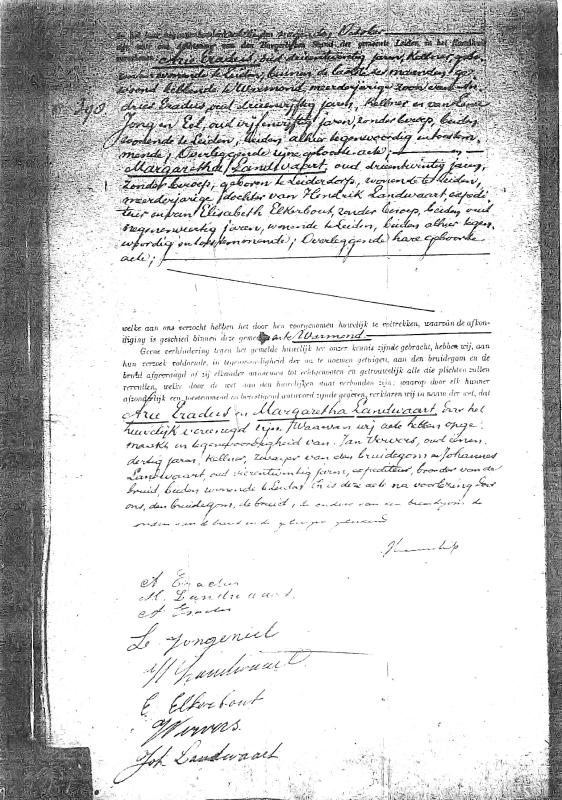 In het jaar negentienhonderd den negenden October
zijn voor ons Ambtenaar van den Burgerlijken Stand der gemeente Leiden in het Raadhuis
verschenen: Arie Eradus, oud drieentwintig jaren, Kellner, gebo-
ren en wonende te Leiden, binnen de laatste zes maanden ge-
woond hebbende te Warmond, meerderjarige zoon van An-
dries Eradus, oud drieenvijftig jaren, Kellner en van Lena
Jongeneel, oud vijfenvijftig jaren, zonder beroep, beiden
wonende te Leiden, beiden alhier tegenwoordig en toestem-
mende; Overleggende zijne geboorte-acte; en
Margaretha Landwaart, oud drieentwintig jaren,
zonder beroep, geboren te Leiderdorp, wonende te Leiden,
meerderjarige dochter van Hendrik Landwaart, expedi-
teur en van Elisabeth Elkerbout, zonder beroep, beiden oud
negenenveertig jaren, wonende te Leiden, beiden alhier tegen-
woordig en toestemmende; Overleggende hare geboorte-
acte;
welke aan ons verzocht hebben het door hen voorgenomen huwelijk te voltrekken, waarvan de afkon-
diging is geschied binnen deze gemeente en te Warmond.
Geene verhindering tegen het gemelde huwelijk ter onzer kennis zijnde gebracht, hebben wij, aan
hun verzoek voldoende, in tegenwoordigheid der na te noemen getuigen, aan den bruidegom en de
bruid afgevraagd of zij elkander aannemen tot echtgenooten en getrouwelijk alle die plichten zullen
vervullen, welke door de wet aan den huwelijken staat verbonden zijn; waarop door elk hunner
afzonderlijk een toestemmend en bevestigend antwoord zijnde gegeven, verklaren wij in naam der wet, dat
Arie Eradus en Margaretha Landwaart, door het
huwelijk vereenigd zijn. Waarvan wij acte hebben opge-
maakt in tegenwoordigheid van Jan Ververs, oud eenen-
dertig jaren, Kellner, zwager van den bruidegom en Johannes
Landwaart, oud vierentwintig jaren, expediteur, broeder van de
bruid, beiden wonende te Leiden. En is deze acte na voorlezing door
ons, den bruidegom, de bruid, de ouders van den bruidegom, de
ouders van de bruid en de getuigen geteekend
A Eradus
M. Landwaart.
A Eradus
L. Jongeneel
H Landwaart
E Elkerbout
J Ververs.
Joh Landwaart